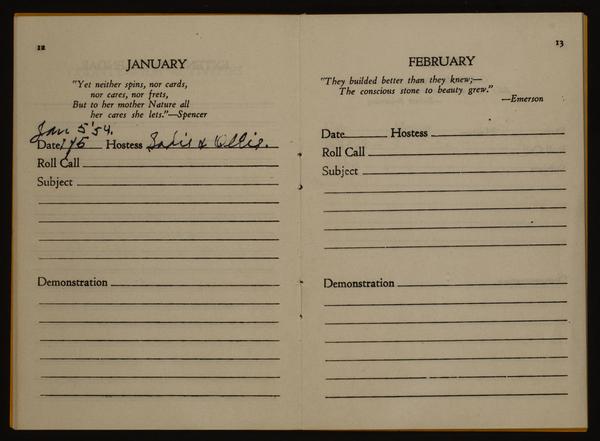 12
JANUARY
"Yet neither spins, nor cards,
nor cares, nor frets,
But to her mother Nature all
her cares she lets."—Spencer
Jan 5 '54.
Date 1/5 Hostess Sadie & Ollie.
Roll Call
Subject
Demonstration
13
FEBRUARY
"They builded better than they knew;—
The conscious stone to beauty grew."
—Emerson
Date Hostess
Roll Call
Subject
Demonstration